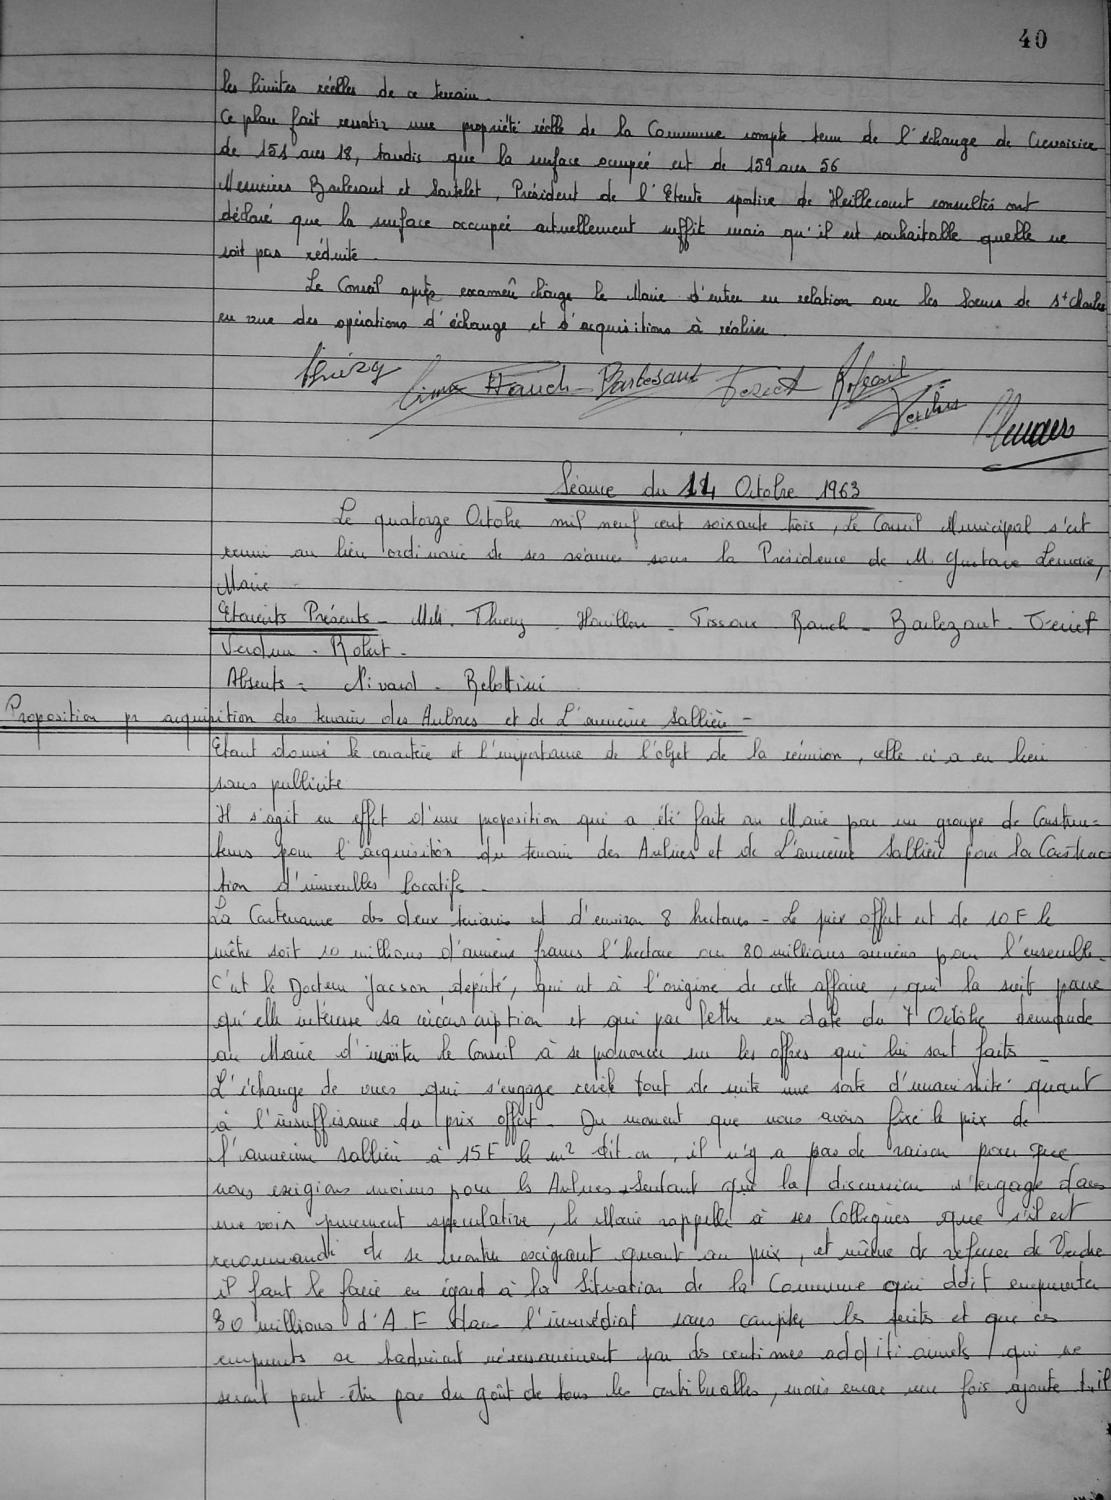 40
les limites réelles de ce terrain.
Ce plan fait ressortir une propriété réelle de la Commune compte tenu de l'échange de Crevoisier
de 151 ares 18, tandis que la surface occupée est de 159 ares 56
Messieurs Barlesaut et Sautelet, Président de l'Etente sportive de Heillecourt consultés ont
déclaré que la surface occupée actuellement suffit mais qu'il est souhaitable quelle ne
soit pas réduite.
Le Conseil après examen charge le Maire d'entrer en relation avec les Soeurs de St Charles
en vue des opérations d'échange et d'acquisitions à réaliser
Thiéry Hauch Barlesaut
Séance du 14 Octobre 1963
Le quatorze Octobre mil neuf cent soixante trois, Le Conseil Municipal s'est
réuni au lieu ordinaire de ses séances sous la Présidence de M. Gustave Lemaire,
Maire -
Etaients Présents - MM. Thiery - Houillon - Tissoux - Rauch - Barlezaut - Feriet
Verdun - Robert -
Absents = Nivard - Relottini
Proposition pr acquisition des terrain des Aulnes et de L'ancienne Sallière -
Etant donné le caractère et l'importance de l'objet de la réunion, celle ci a eu lieu
sans publicite
Il s'agit en effet d'une proposition qui a été faite au Maire par un groupe de Construc=
teurs pour l'acquisition du terrain des Aulnes et de L'ancienne Sallière pour la Construc
tion d'immeubles locatifs -
La Contenance des deux terrains est d'environ 8 hectares - Le prix offert est de 10 F le
mètre soit 10 millions d'anciens francs l'hectare ou 80 millions anciens pour l'ensemble -
C'est le Docteur Jacson, député, qui est à l'origine de cette affaire, qui la suit parce
qu'elle intéresse sa circonscription et qui par lettre en date du 7 Octobre demande
au Maire d'inviter le Conseil à se prononcer sur les offres qui lui sont faits -
L'échange de vues qui s'engage revèle tout de suite une sorte d'unanimité quant
à l'insuffisance du prix offert - Du moment que nous avons fixé le prix de
l'ancienne sallière à 15 F le m² dit-on, il n'y a pas de raison pour que
nous exigions moins pour les Aulnes - Sentant que la discussion s'engage dans
une voix purement spéculative, le Maire rappelle à ses Collègues que s'il est
recommandé de se montrer exigeant quant au prix, et même de refuser de Vendre
il faut le faire eu égard à la Situation de la Commune qui doit emprunter
30 millions d'A.F dans l'immédiat sans compter les suites et que ces
emprunts se traduiront nécessairement par ds centimes additionnels qui ne
seront peut-être pas du goût de tous les contribuables, mais encore une fois ajoute t-il